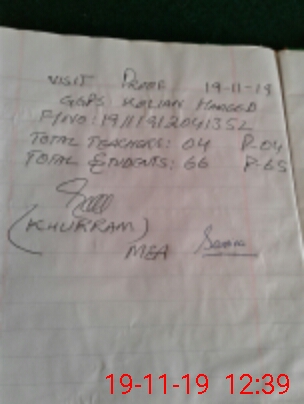 VISIT PROOF 19-11-19
GGPS KALIAN HAMEED
F/NO: 19111912041352
TOTAL TEACHERS: 04 P-04
TOTAL STUDENTS: 66 P-65
(KHURRAM)
MEA
19-11-19 12:39